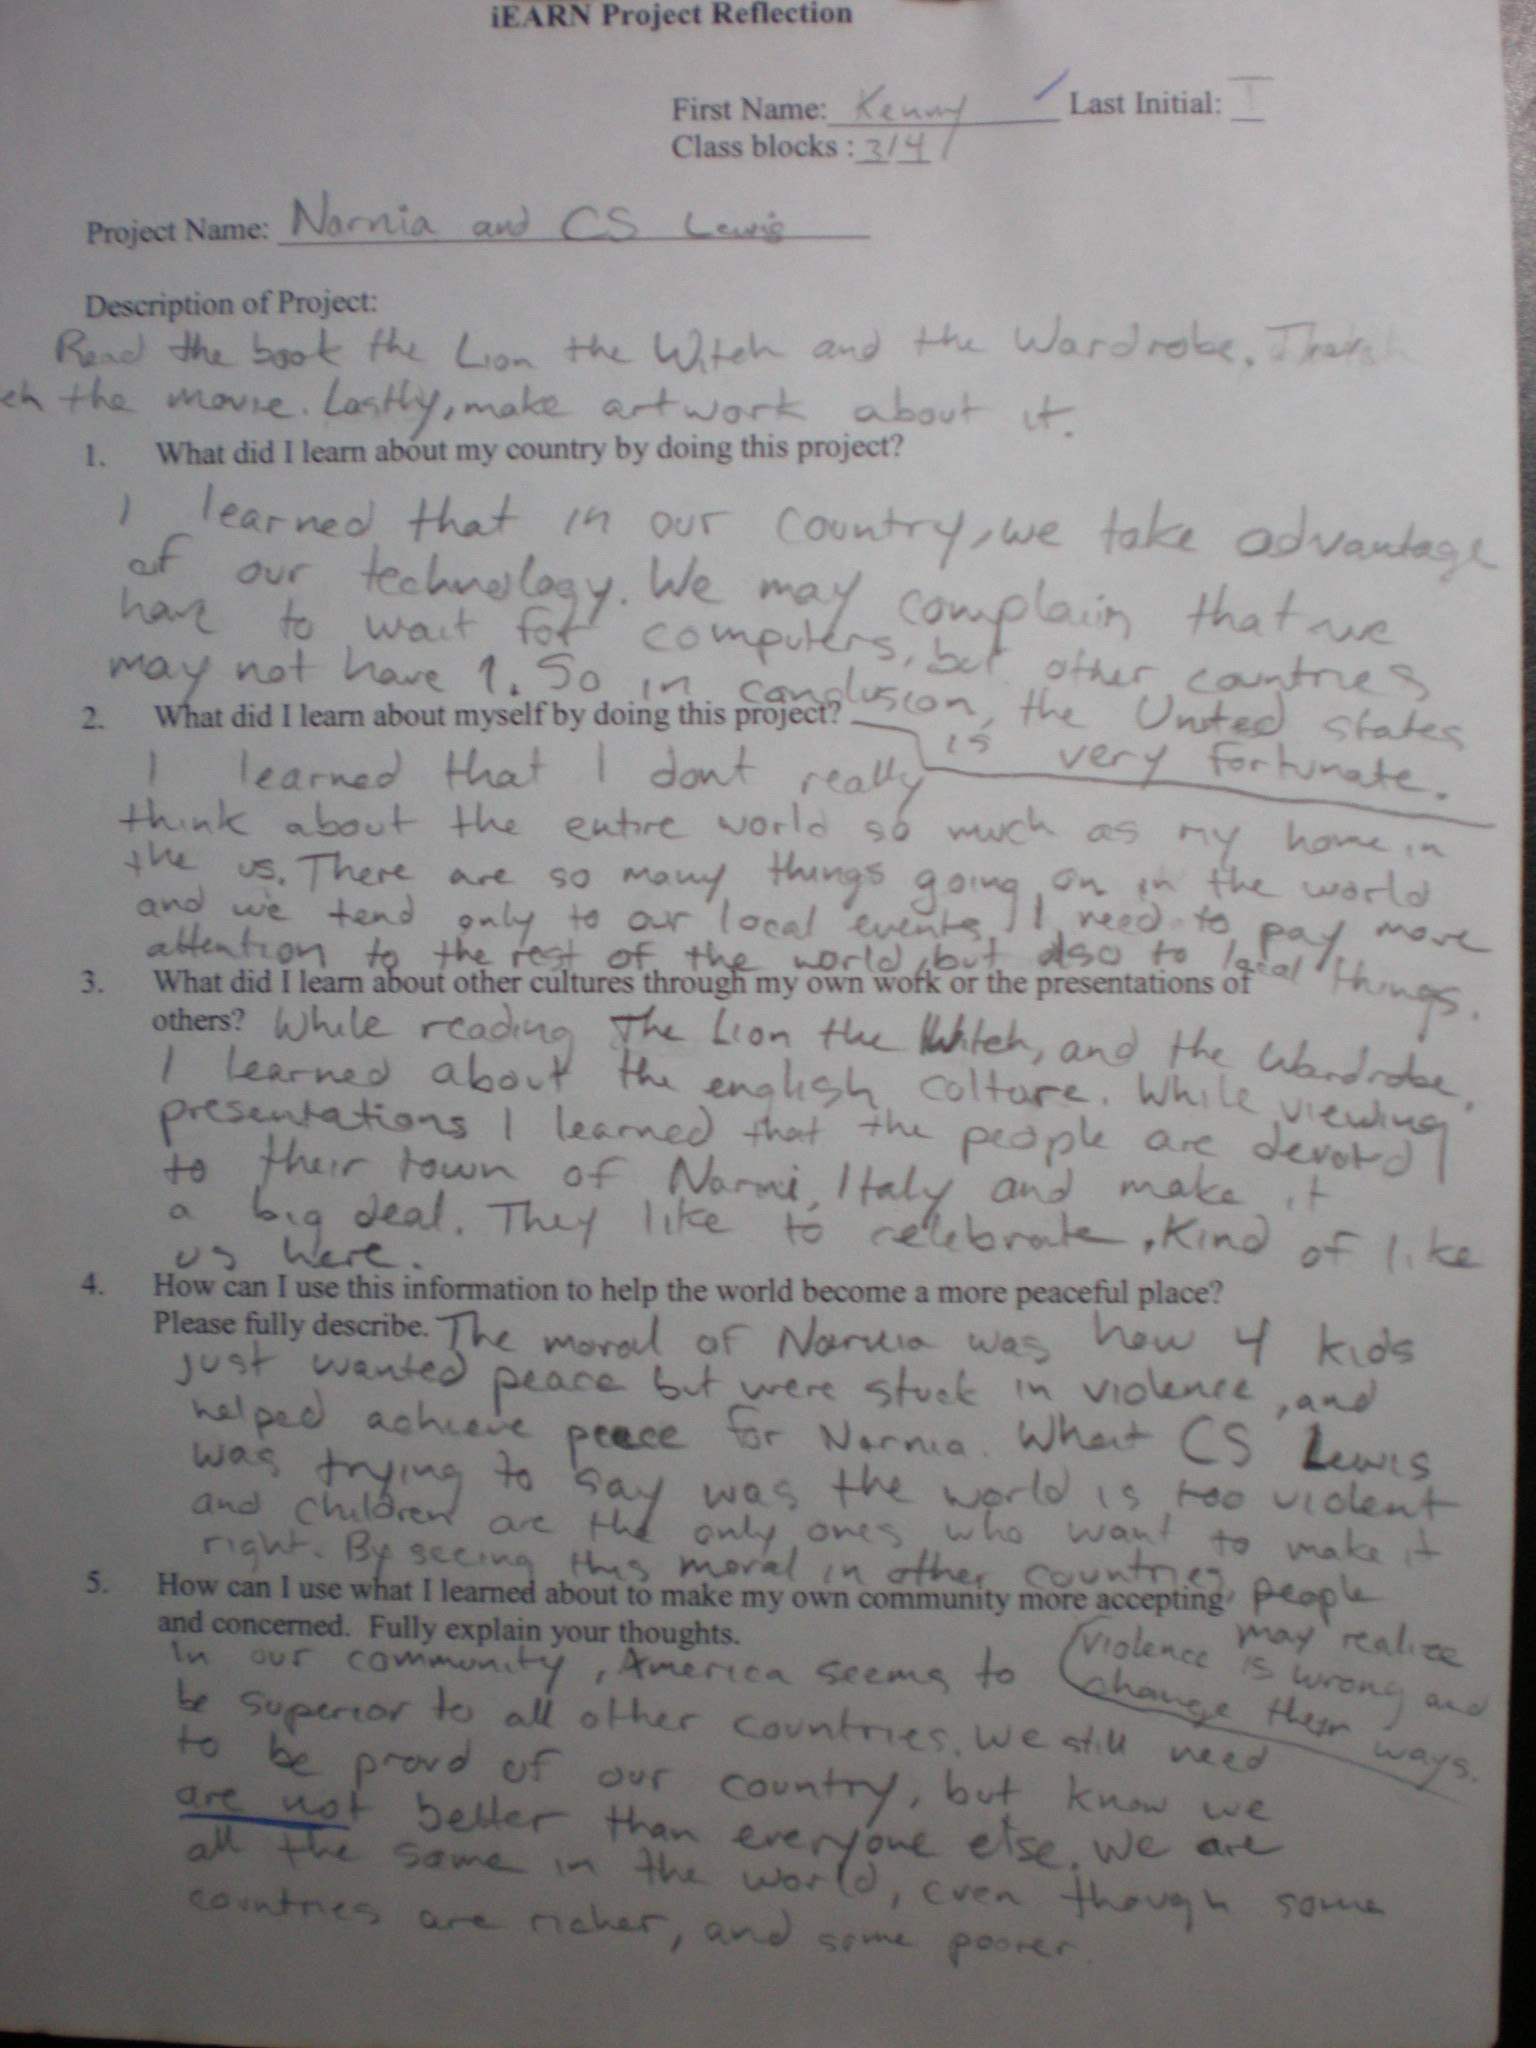 iEARN Project Reflection
First Name: Kenny Last Initial: I
Class blocks : 3/4
Project Name: Narnia and CS Lewis
Description of Project:
Read the book the Lion the Witch and the Wardrobe.
the movie. Lastly, make artwork about it.
1. What did I learn about my country by doing this project?
I learned that in our country, we take advantage
of our technology. We may complain that we
have to wait for computers, but other countries
may not have 1. So in conclusion, the United states
is very fortunate.
2. What did I learn about myself by doing this project?
I learned that I dont really
think about the entire world so much as my home in
the us. There are so many things going on in the world
and we tend only to our local events. I need to pay more
attention to the rest of the world, but also to local things.
3. What did I learn about other cultures through my own work or the presentations of
others? While reading The Lion the Witch, and the Wardrobe,
I learned about the english colture. While viewing
presentations I learned that the people are devoted
to their town of Narni, Italy and make it
a big deal. They like to celebrate, Kind of like
us here.
4. How can I use this information to help the world become a more peaceful place?
Please fully describe. The moral of Narnia was how 4 kids
just wanted peace but were stuck in violence, and
helped achieve peece for Narnia. What CS Lewis
was trying to say was the world is too violent
and children are the only ones who want to make it
right. By seeing this moral in other countries, people
may realize
violence is wrong and
change their ways.
5. How can I use what I learned about to make my own community more accepting
and concerned. Fully explain your thoughts.
In our community, America seems to
be superior to all other countries. We still need
to be proud of our country, but know we
are not better than everyone else. We are
all the same in the world, even though some
countries are richer, and some poorer